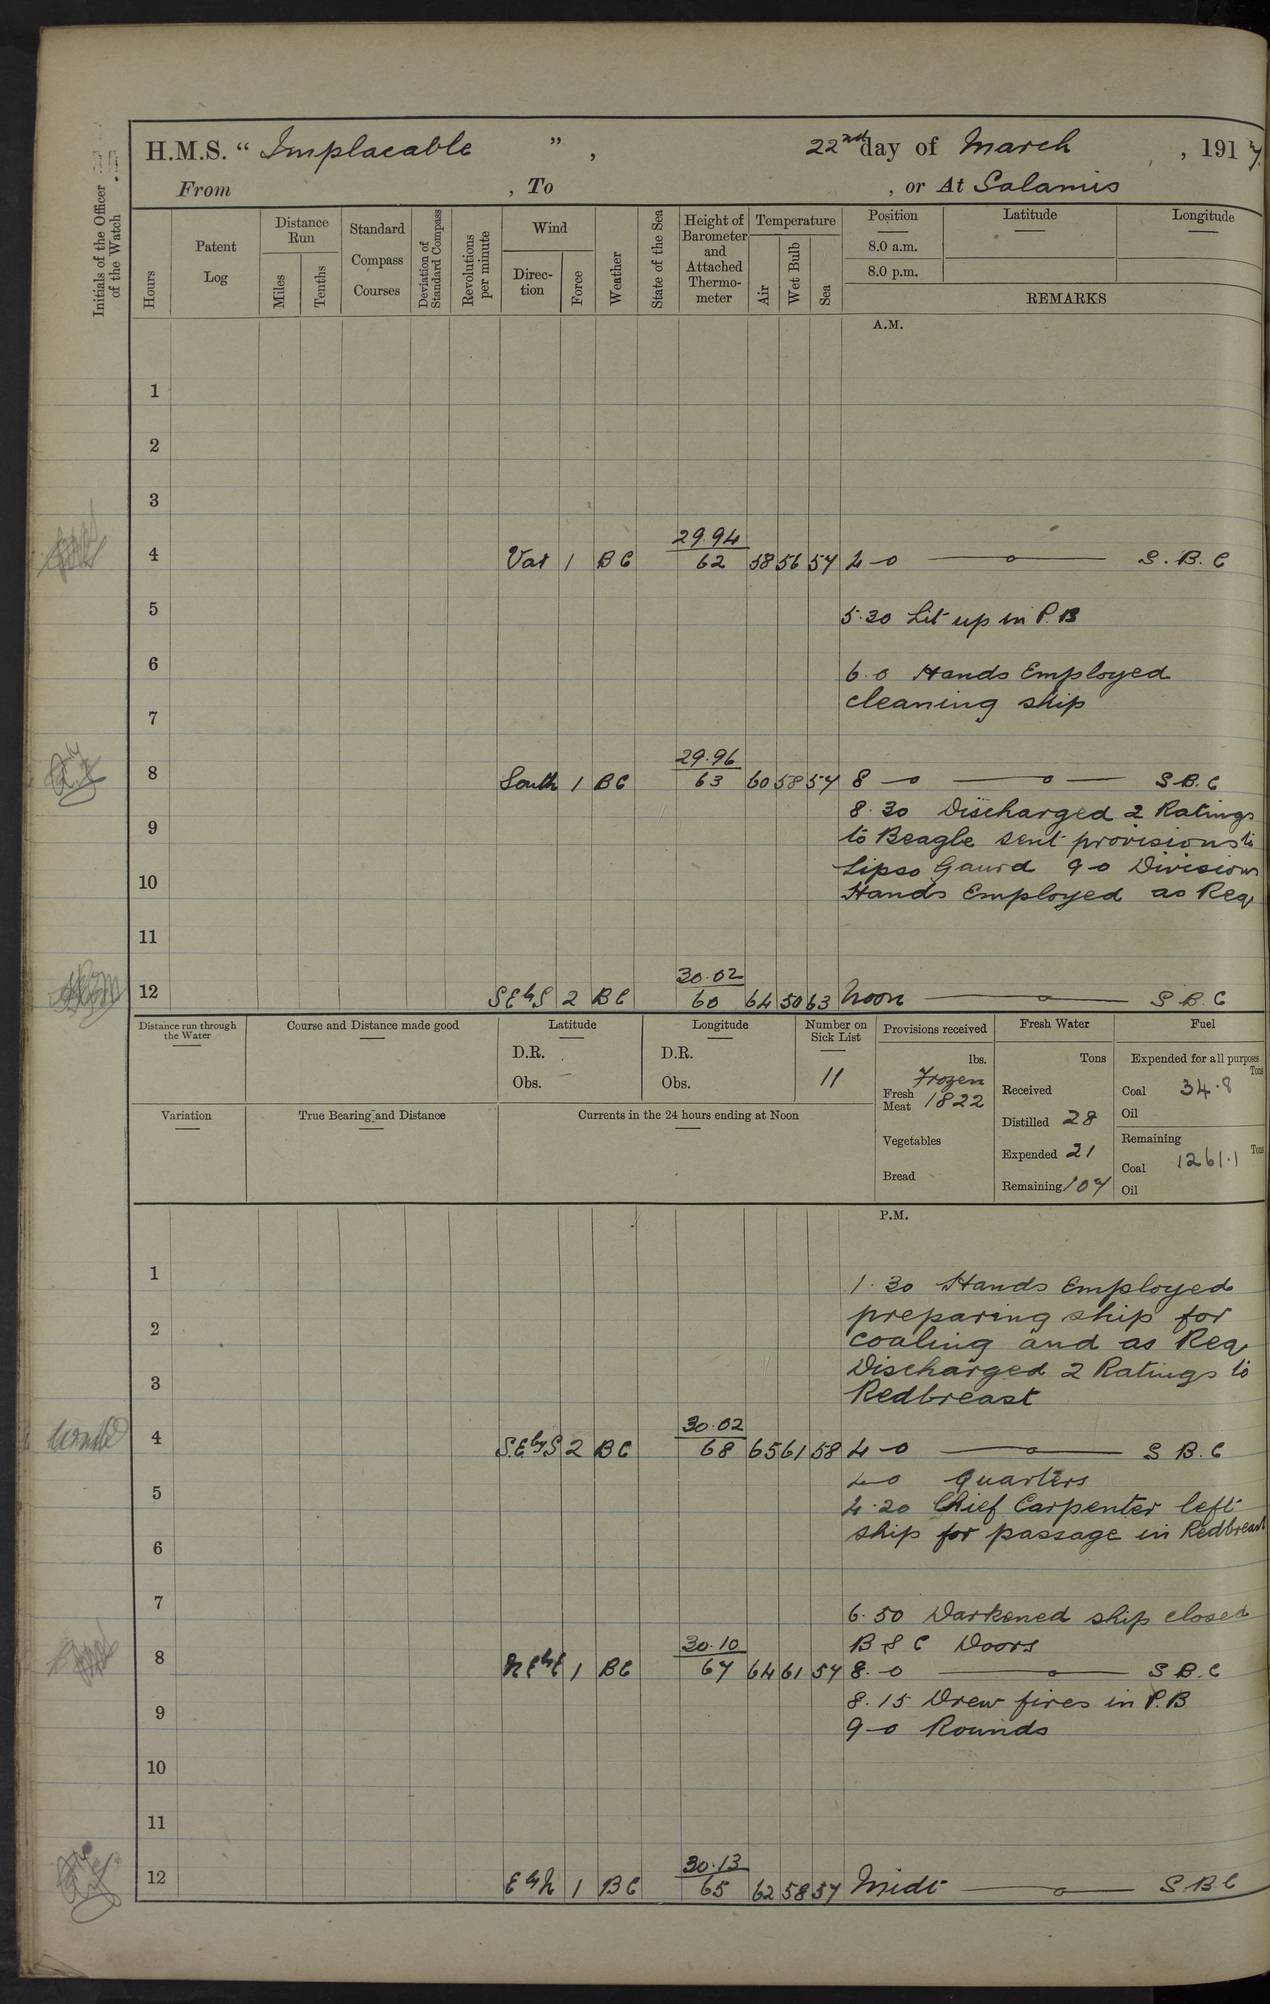 H.M.S. “ Implacable ” , 22nd day of March , 1917.
From , To , or At Salamis
Initials of the Officer of the Watch
Hours
Patent Log
Distance Run
Miles
Tenths
Standard Compass Courses
Deviation of Standard Compass
Revolutions per minute
Wind
Direc-tion
Force
Weather
State of the Sea
Height of Barometer and Attached Thermo-meter
Temperature
Air
Wet Bulb
Sea
Position
8.0 a.m.
8.0 p.m.
Latitude
Longitude
REMARKS
A.M.
1
2
3
29.94
4 Var 1 BC 62 58 56 57 4-0 S.B.C
5 5.30 Lit up in P.B
6 6.0 Hands Employed
cleaning ship
7
29.96
8 South 1 BC 63 60 58 57 8-0 S.B.C
8.30 Discharged 2 Ratings
9 to Beagle sent provisions to
Lipso Gaurd 9-0 Divisions
10 Hands Employed as Req
11
30.02
12 SEbyS 2 BC 60 64 50 63 Noon S B.C
Distance run through the Water
Course and Distance made good
Latitude
D.R.
Obs.
Longitude
D.R.
Obs.
Number on Sick List
11
Provisions received
lbs.
Frozen
Fresh Meat 1822
Vegetables
Bread
Fresh Water
Tons
Received
Distilled 28
Expended 21
Remaining 107
Fuel
Expended for all purposes
Tons
Coal 34.8
Oil
Remaining
Tons
Coal 1261.1
Oil
Variation
True Bearing and Distance
Currents in the 24 hours ending at Noon
P.M.
1 1.30 Hands Employed
preparing ship for
2 coaling and as Req
Discharged 2 Ratings to
3 Redbreast
30.02
4 S.E.byS 2 BC 68 65 61 58 4-0 S B.C
4-0 Quarters
5 4.20 Chief Carpenter left
ship for passage in Redbreast
6
7 6.50 Darkened ship closed
B & C Doors
30.10
8 NEbyE 1 BC 67 64 61 57 8.-0 S B.C
8.15 Drew fires in P.B
9 9-0 Rounds
10
11
30.13
12 EbyN 1 BC 65 62 58 57 Midt S B C